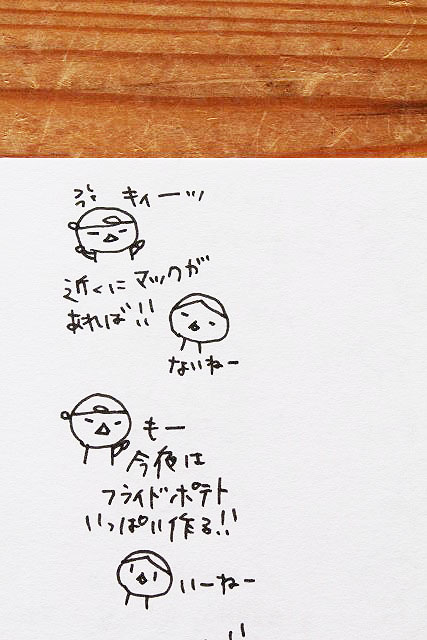 キィーッ
近くにマックが
あれば!!
ないねー
もー
今夜は
フライドポテト
いっぱい作る!!
いーねー